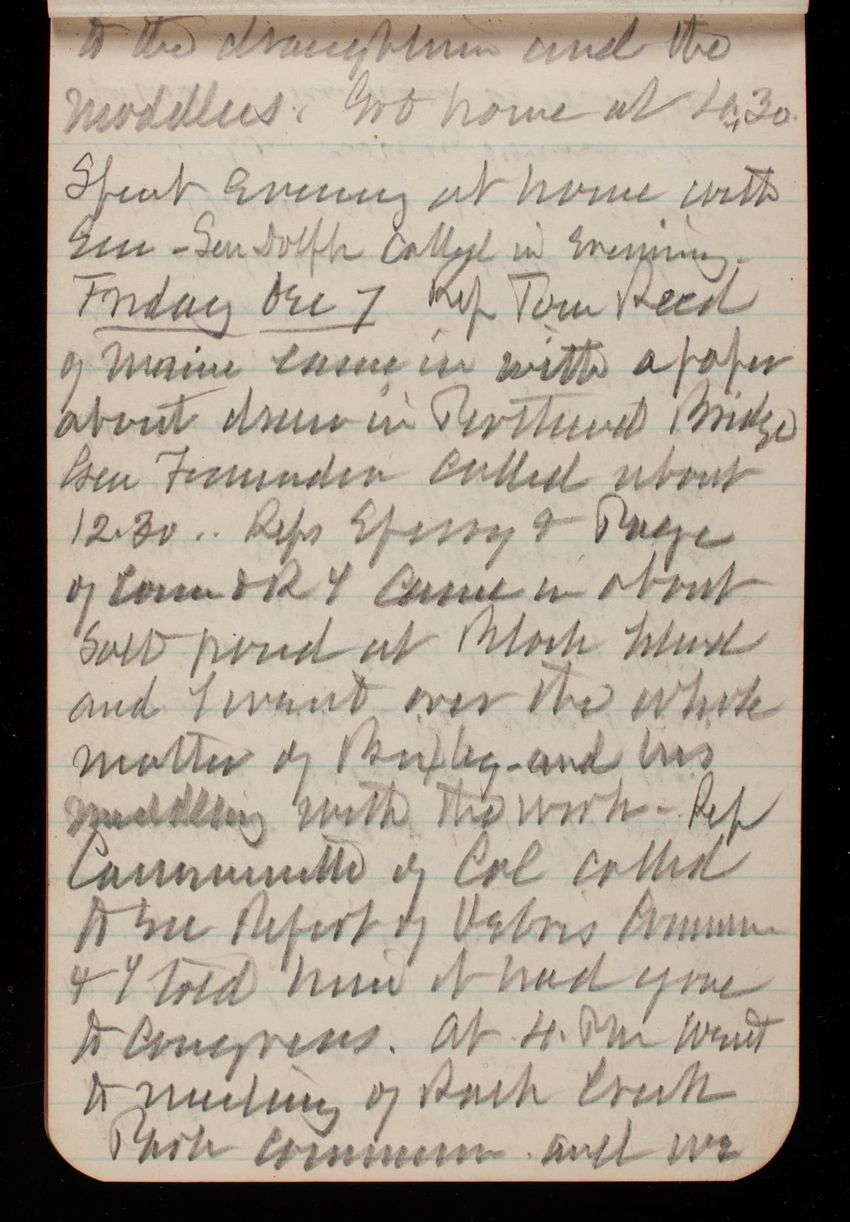 to the draughtsmen and the
modellers. Got home at 4.30.
Spent Evening at home with
Em - Sen Dolph called in Evening.
Friday Dec 7 Rep Tom Reed
of Maine came in with a paper
about draw in Bridge
Gen called about
12.30.. Reps & Page
of Conn & R I came in about
Salt pond at Block Island
and I went over the whole
matter of Bixby - and his
meddling with the work - Rep
Caminetti of Cal called
to see Report of Debris Commn
& I told him it had gone
to Congress. At 4. PM went
to meeting of Rock Creek
Park Commn. and we